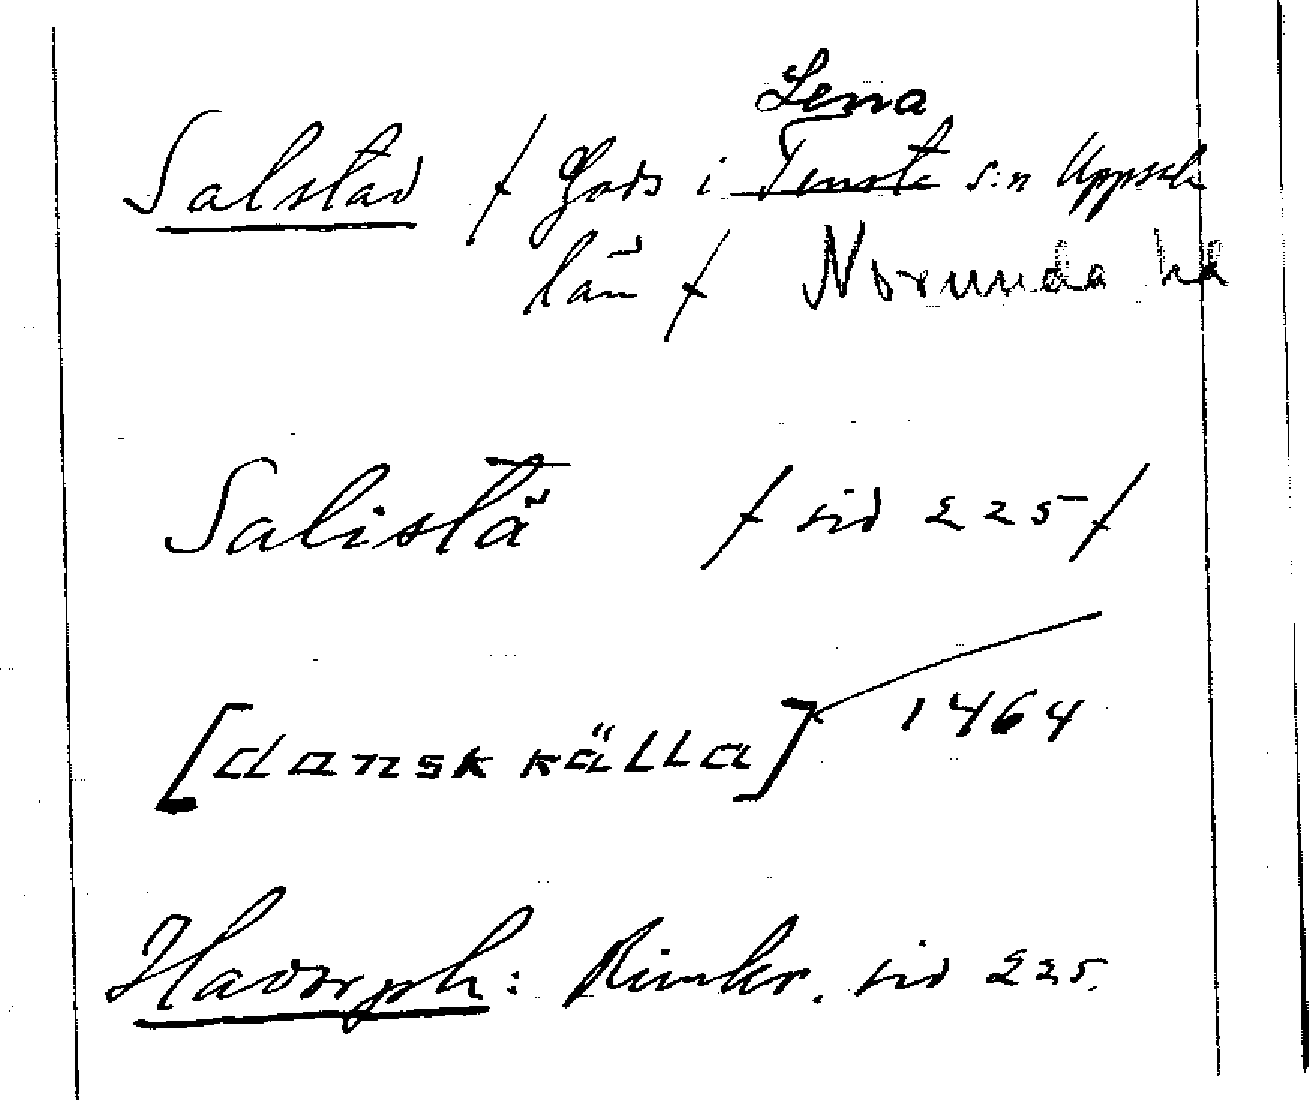 Lena
Salstad / Gods i Tensta s:n Uppsala
län / Norunda hd
Salistä / sid 225 /
[dansk källa] 1464
Hadorph: Rimkr. sid 225.